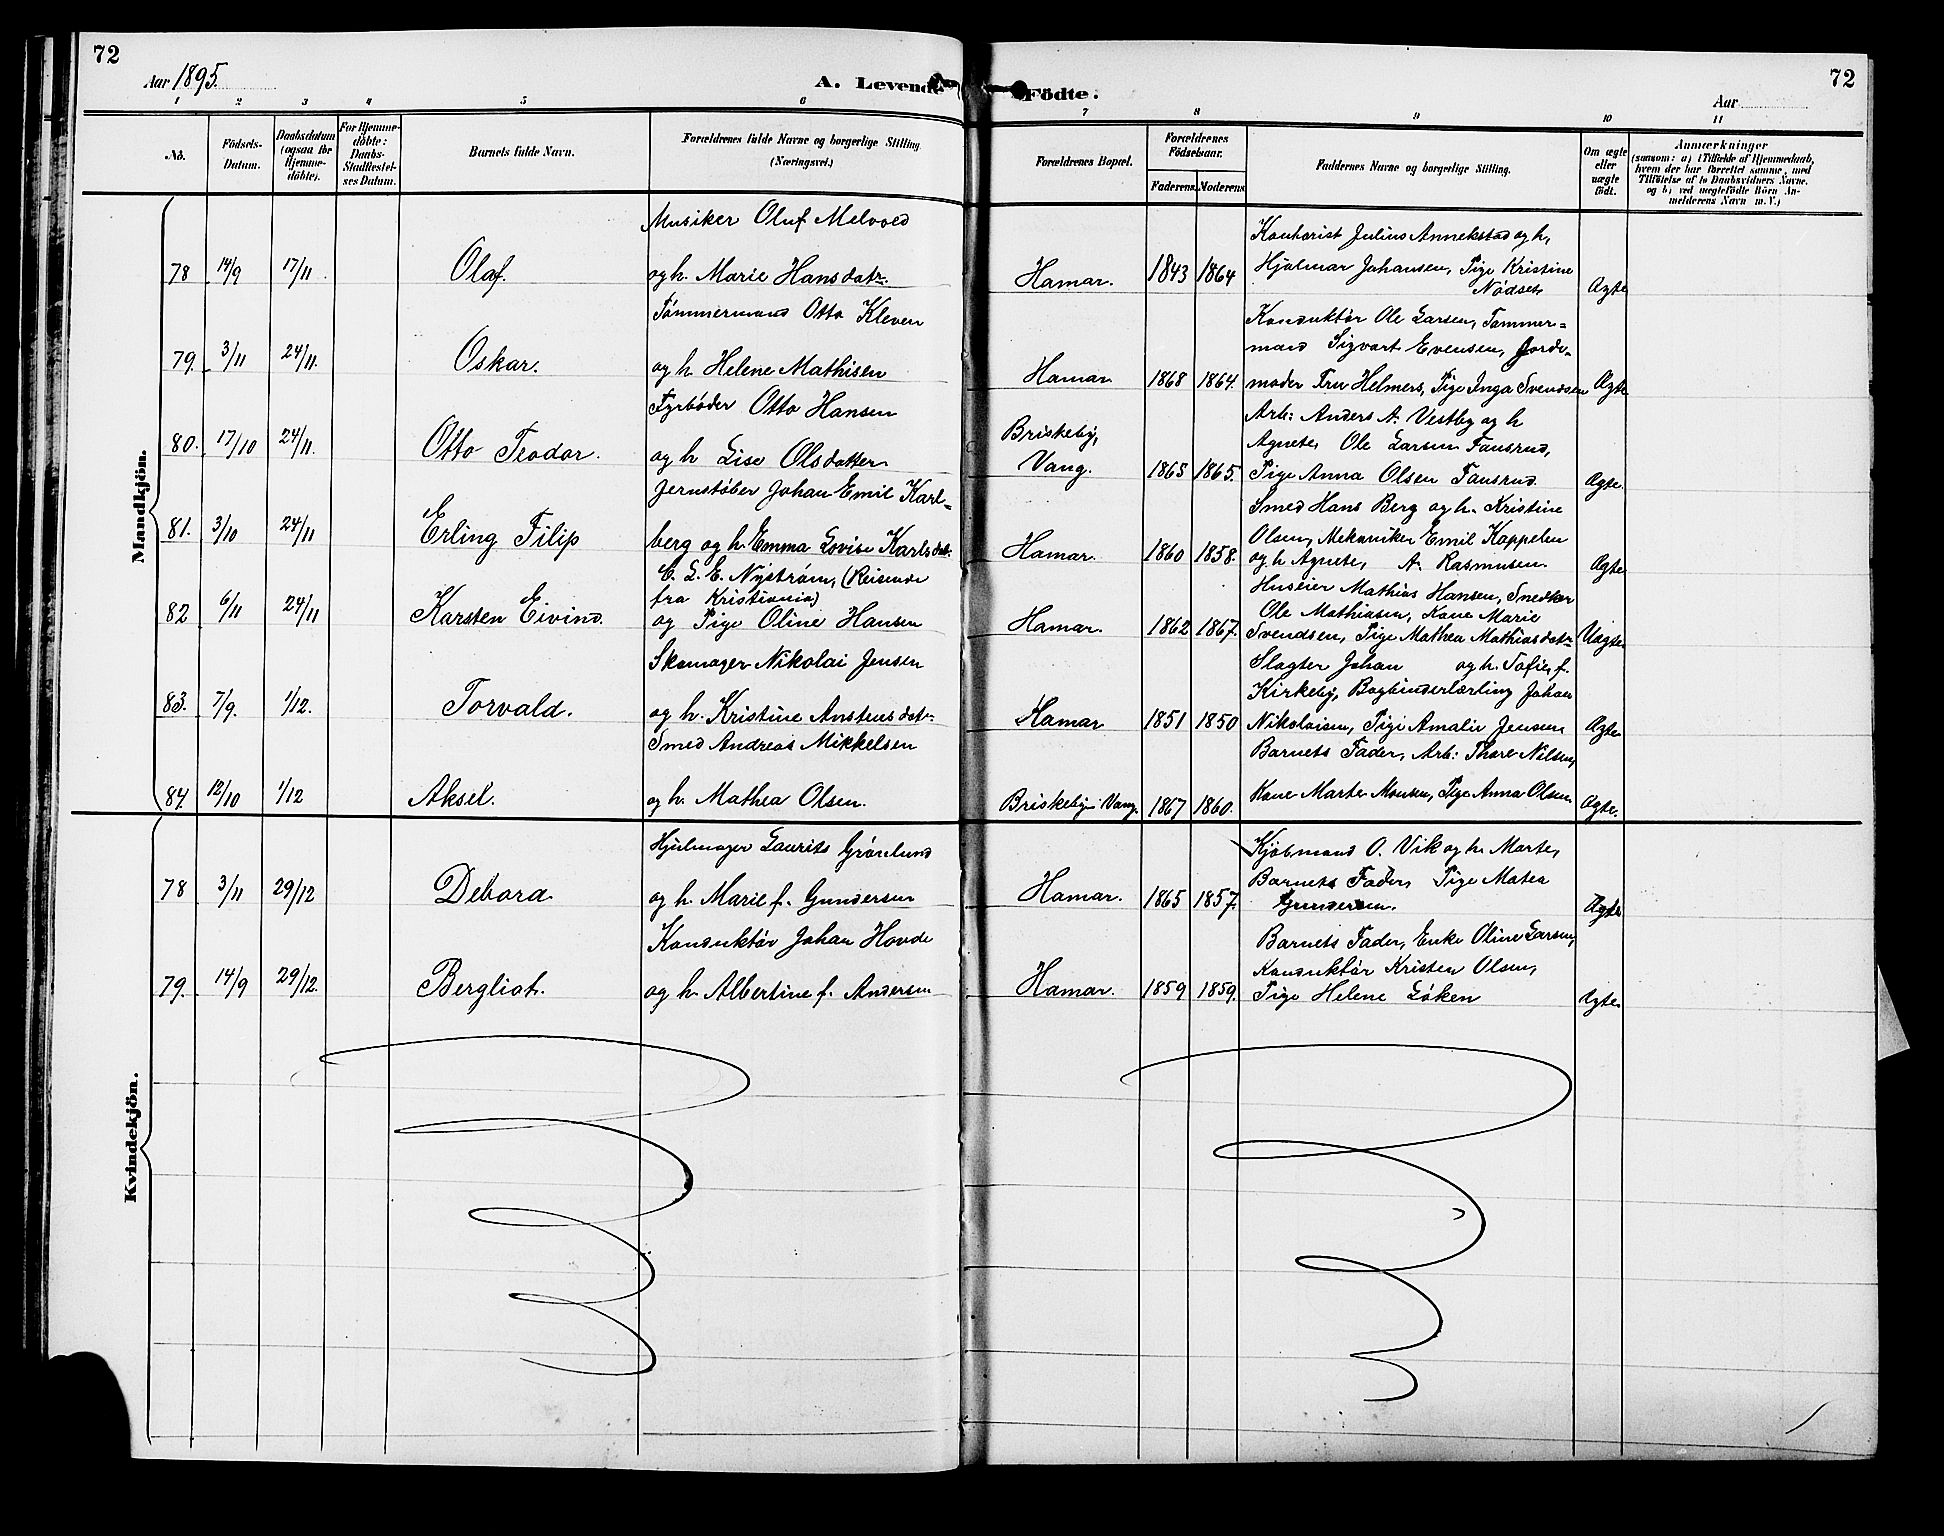 72
Aar 1895.
A. Levende
1 2 3 4 5 6
No.
Födsels-Datum.
Daabsdatum (ogsaa for Hjemme-döbte).
For Hjemme-döbte: Daabs-Stadfæstel-ses Datum.
Barnets fulde Navn.
Forældrenes fulde Navne og borgerlige Stilling. (Næringsvei.)
Födte.
72
Aar
7 8 9 10 11
Forældrenes Bopæl.
Forældrenes Födselsaar.
Faderens. Moderens.
Faddernes Navne og borgerlige Stilling.
Om ægte eller uægte födt.
Anmærkninger
(saasom: a) i Tilfælde af Hjemmedaab,
hvem der har forrettet samme, med
Tilföielse af to Daabsvidners Navne,
og b) ved uægtefödte Börn An-
melderens Navn m. V.)
Mandkjön.
Musiker Oluf Melvold
78 14/9 17/11 Olaf. og h. Marie Hansdatr.
Hamar. 1843 1864
Kontorist Julius Annekstad og h,
Hjalmar Johansen, Pige Kristine
Nødset
Ægte
Tømmermand Otto Kleven
79. 3/11 24/11. Oskar. og h. Helene Mathisen
Hamar. 1868 1864.
Konduktør Ole Larsen, Tømmer=
mand Sigvart Evensen, Jorde-
moder Fru Helmers, Pige Inga Svendsen
Ægte
Fyrbøder Otto Hansen
80. 17/10 24/11. Otto Teodor. og h Lise Olsdatter
Briskeby,
Vang. 1865 1865.
Arb: Anders A. Vestby og h
Agnete, Ole Larsen Fausrud,
Pige Anna Olsen Fausrud.
Ægte.
Jernstøber Johan Emil Karl=
81. 3/10 24/11 Erling Filip berg og h. Emma Lovise Karlsdat.
Hamar. 1860 1858.
Smed Hans Berg og h. Kristine
Olsen, Mekaniker Emil Kappelen
og h Agnete, A. Rasmusen.
Ægte
C. L. E. Nystrøm, (Reisende
fra Kristiania)
82 6/11 24/11 Karsten Eivind. og Pige Oline Hansen
Hamar. 1862 1867.
Huseier Mathias Hansen, Snedker
Ole Mathiasen, Kone Marie
Svendsen, Pige Mathea Mathiasdatr
Uægte.
Skomager Nikolai Jensen
83. 7/9. 1/12. Torvald. og h. Kristine Anstensdatr.
Hamar 1851 1850
Slagter Johan og h. Sofie, f.
Kirkeby, Bogbinderlærling Johan
Nikolaisen, Pige Amalie Jensen
Ægte.
Smed Andreas Mikkelsen
84. 12/10 1/12 Aksel. og h. Mathea Olsen.
Briskeby Vang. 1867 1860.
Barnets Fader, Arb: Thore Nilsen,
Kone Marte Monsen, Pige Anna Olsen
Ægte.
Kvindekjön.
Hjulmager Laurits Grønlund
78 3/11 29/12 Debora. og h. Marie f. Gundersen
Hamar. 1865 1857.
Kjøbmand O. Vik og h. Marte,
Barnets Fader, Pige Matea
Gundersen.
Ægte
Konduktør Johan Hovde
79. 14/9 29/12. Bergliot. og h. Albertine f. Andersen
Hamar. 1859 1859.
Barnets Fader, Enke Oline Larsen,
Konduktør Kristen Olsen,
Pige Helene Løken
Ægte